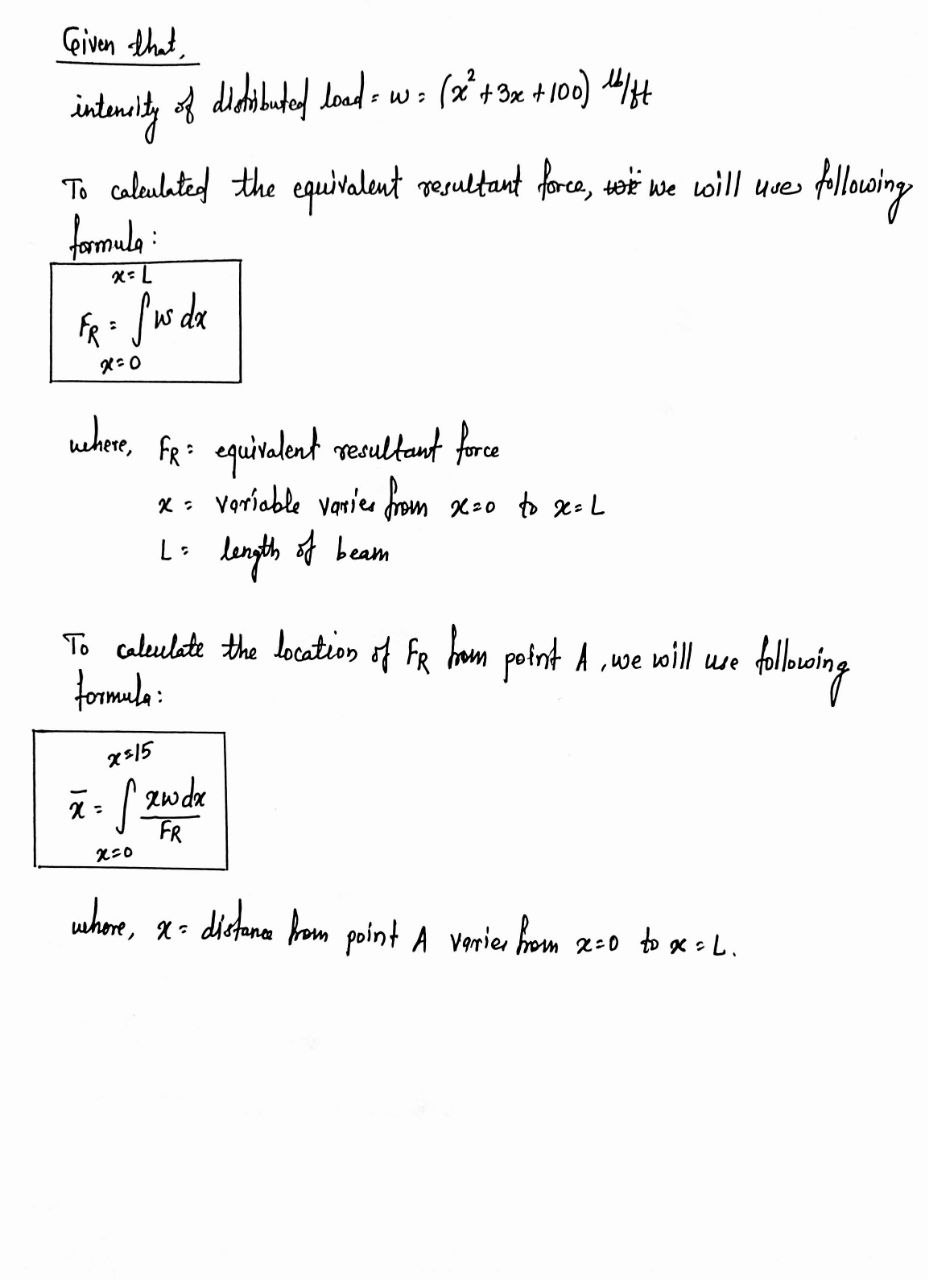 Given that,
intensity of distributed load = w = (x² + 3x + 100) lb/ft
To calculated the equivalent resultant force, we will use following
formula :
x = L
F_R = ∫ w dx
x = 0
where, F_R = equivalent resultant force
x = variable varies from x=0 to x=L
L = length of beam
To calculate the location of F_R from point A, we will use following
formula :
x=15
x̄ = ∫ xwdx/F_R
x=0
where, x = distance from point A varies from x=0 to x=L.